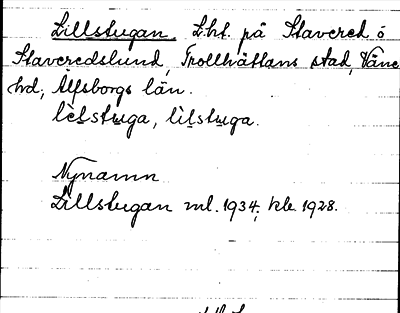 Lillstugan. Lht. på Stavered o
Staveredslund, Trollhättans stad, Väne
hd, Älfsborgs län.
lilstuga, lilstuga.
Nynamn
Lillstugan ml. 1934; kb. 1928.